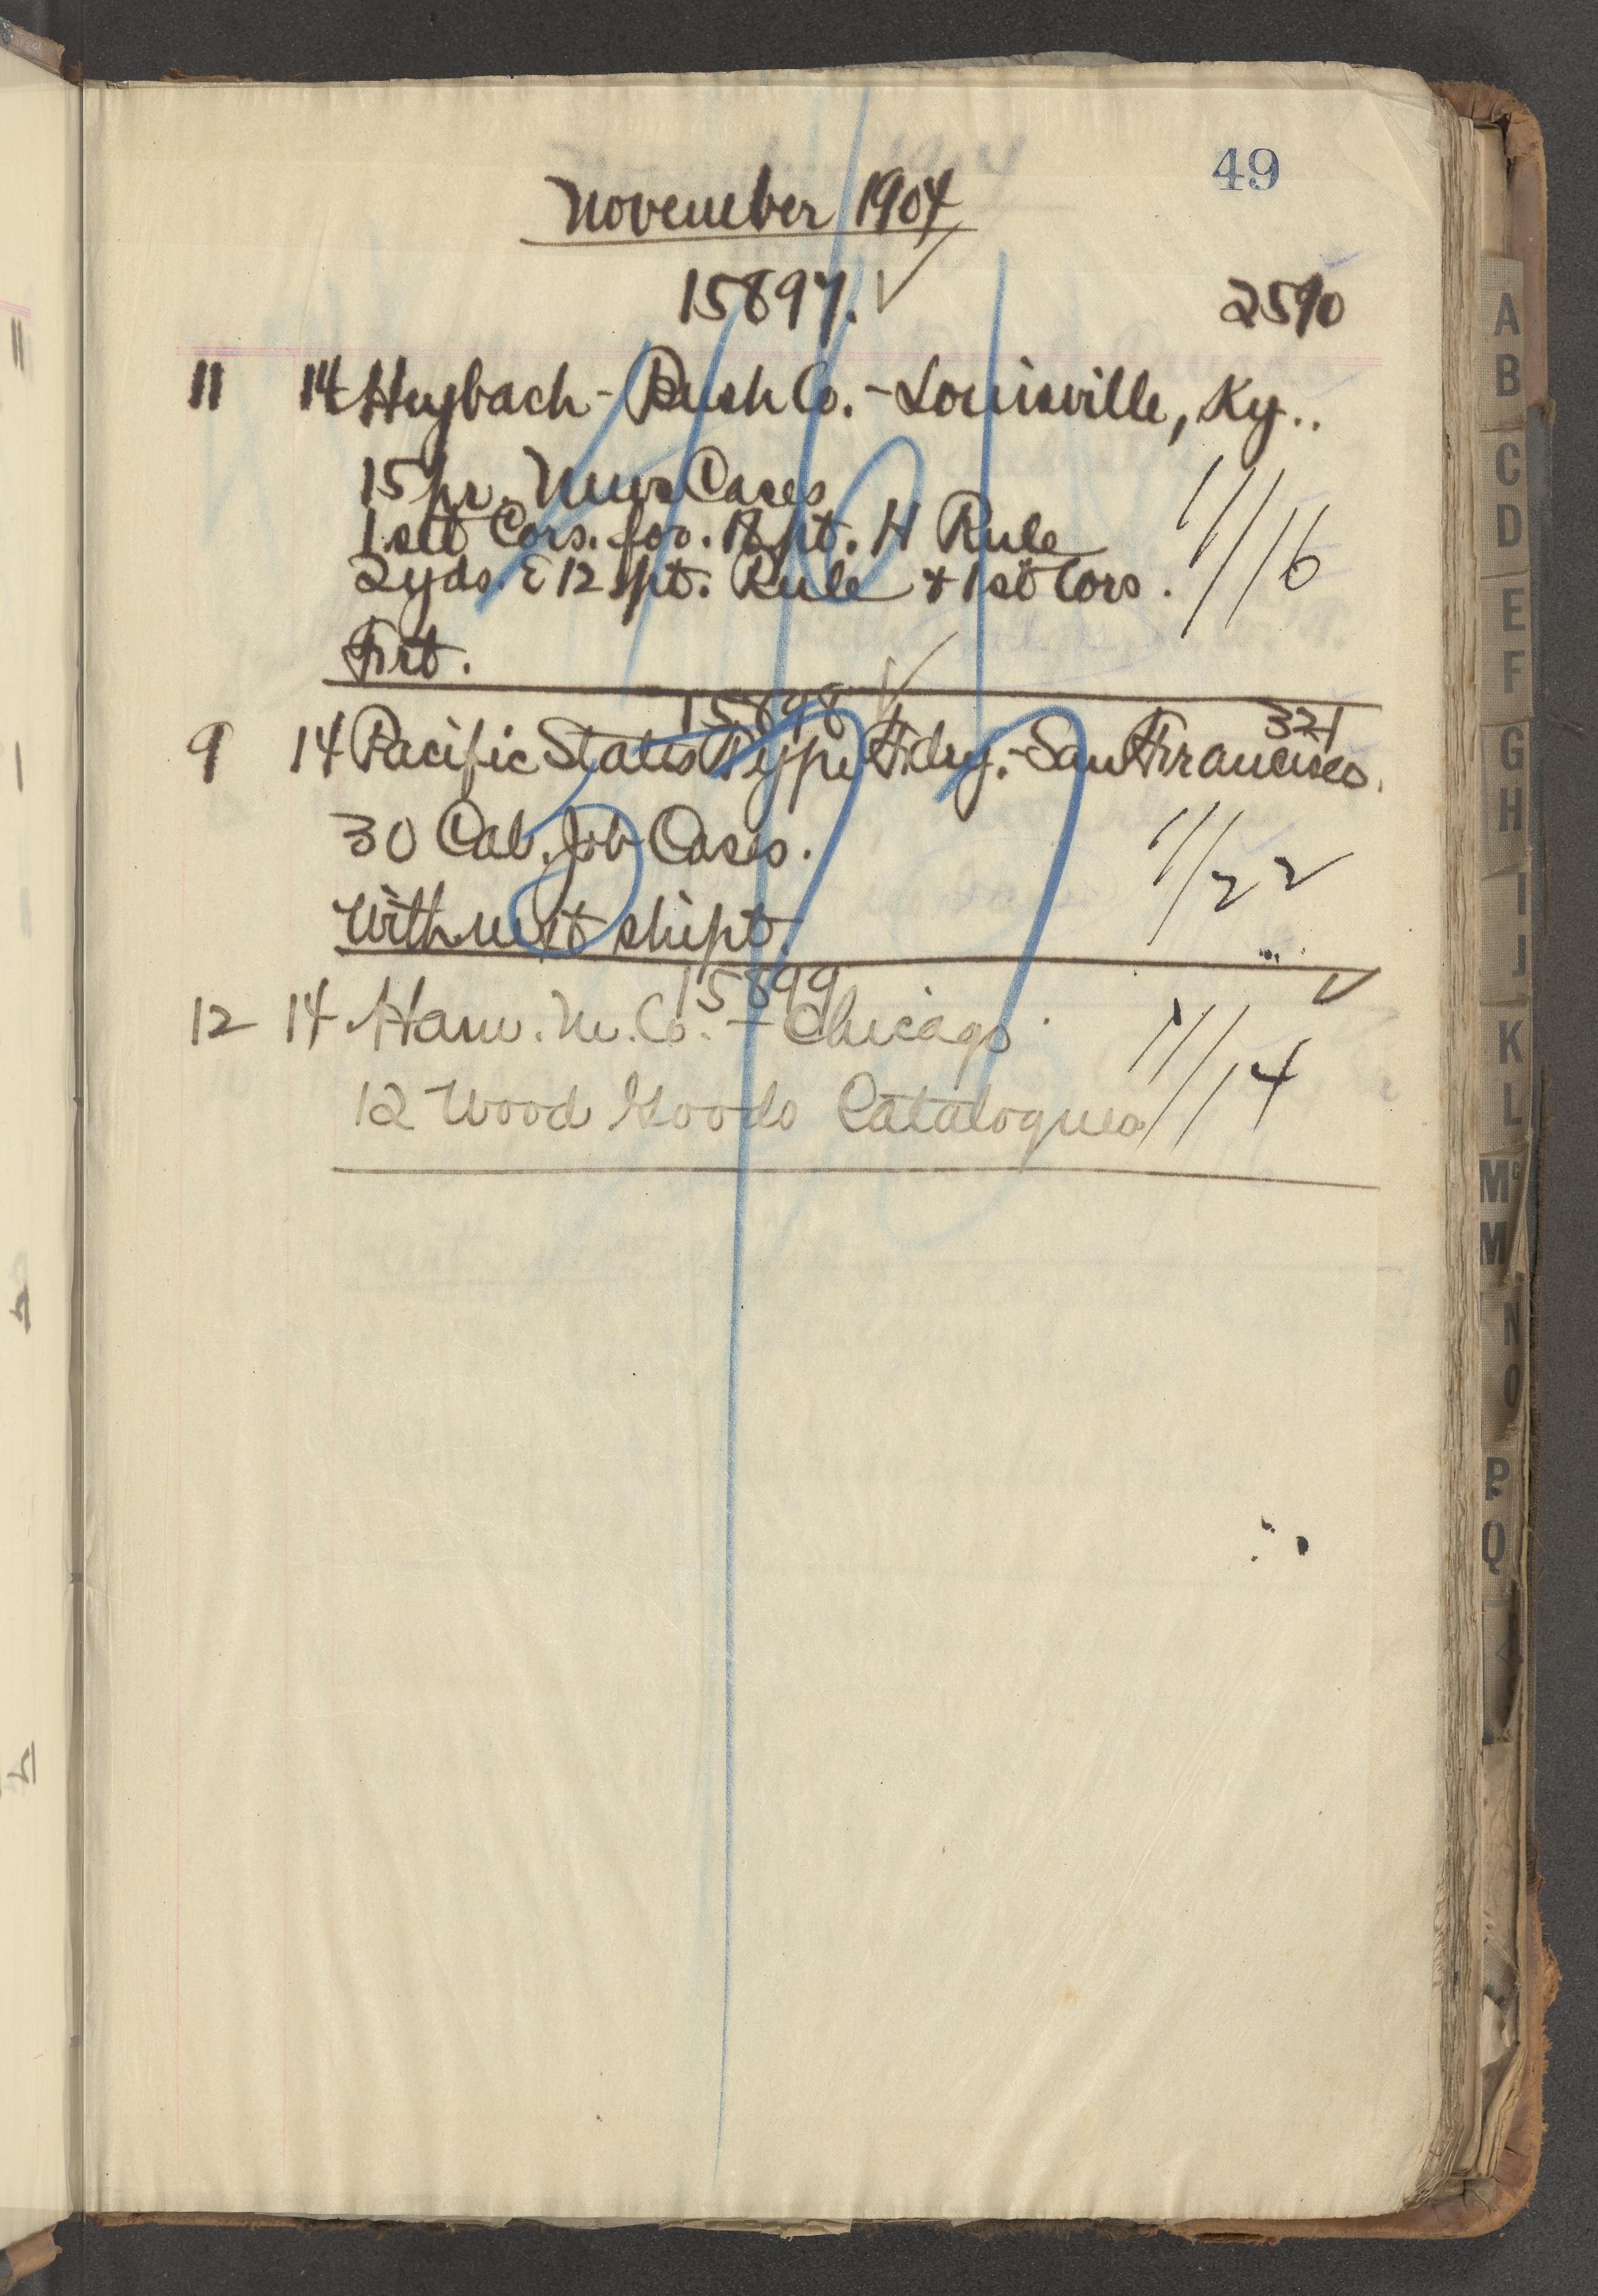 49
November 1904
15897. ✓ 2590
11 14 Heybach-Bush Co. - Louisville, Ky..
15 pr. News Cases
1 sett Cors. for. 18 pt. H Rule 11/16
2 yds. E 12 pt. Rule & 1 set Cors.
Frt.
15898 ✓ 321
9 14 Pacific States Type Fdry. - San Francisco.
30 Cal. Job Cases. 11/22
With next shipt.
15899 ✓
12 14 Ham. M. Co. - Chicago.
12 Wood Goods Catalogues 11/14
A
B
C
D
E
F
G
H
I
J
K
L
Mc
M
N
O
P
Q